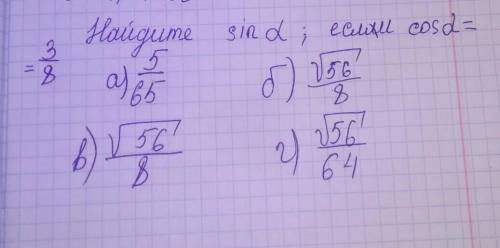 Найдите sin α; если cos α =
= 3/8 а) 5/65 б) √56/8
в) √56/8 г) √56/64